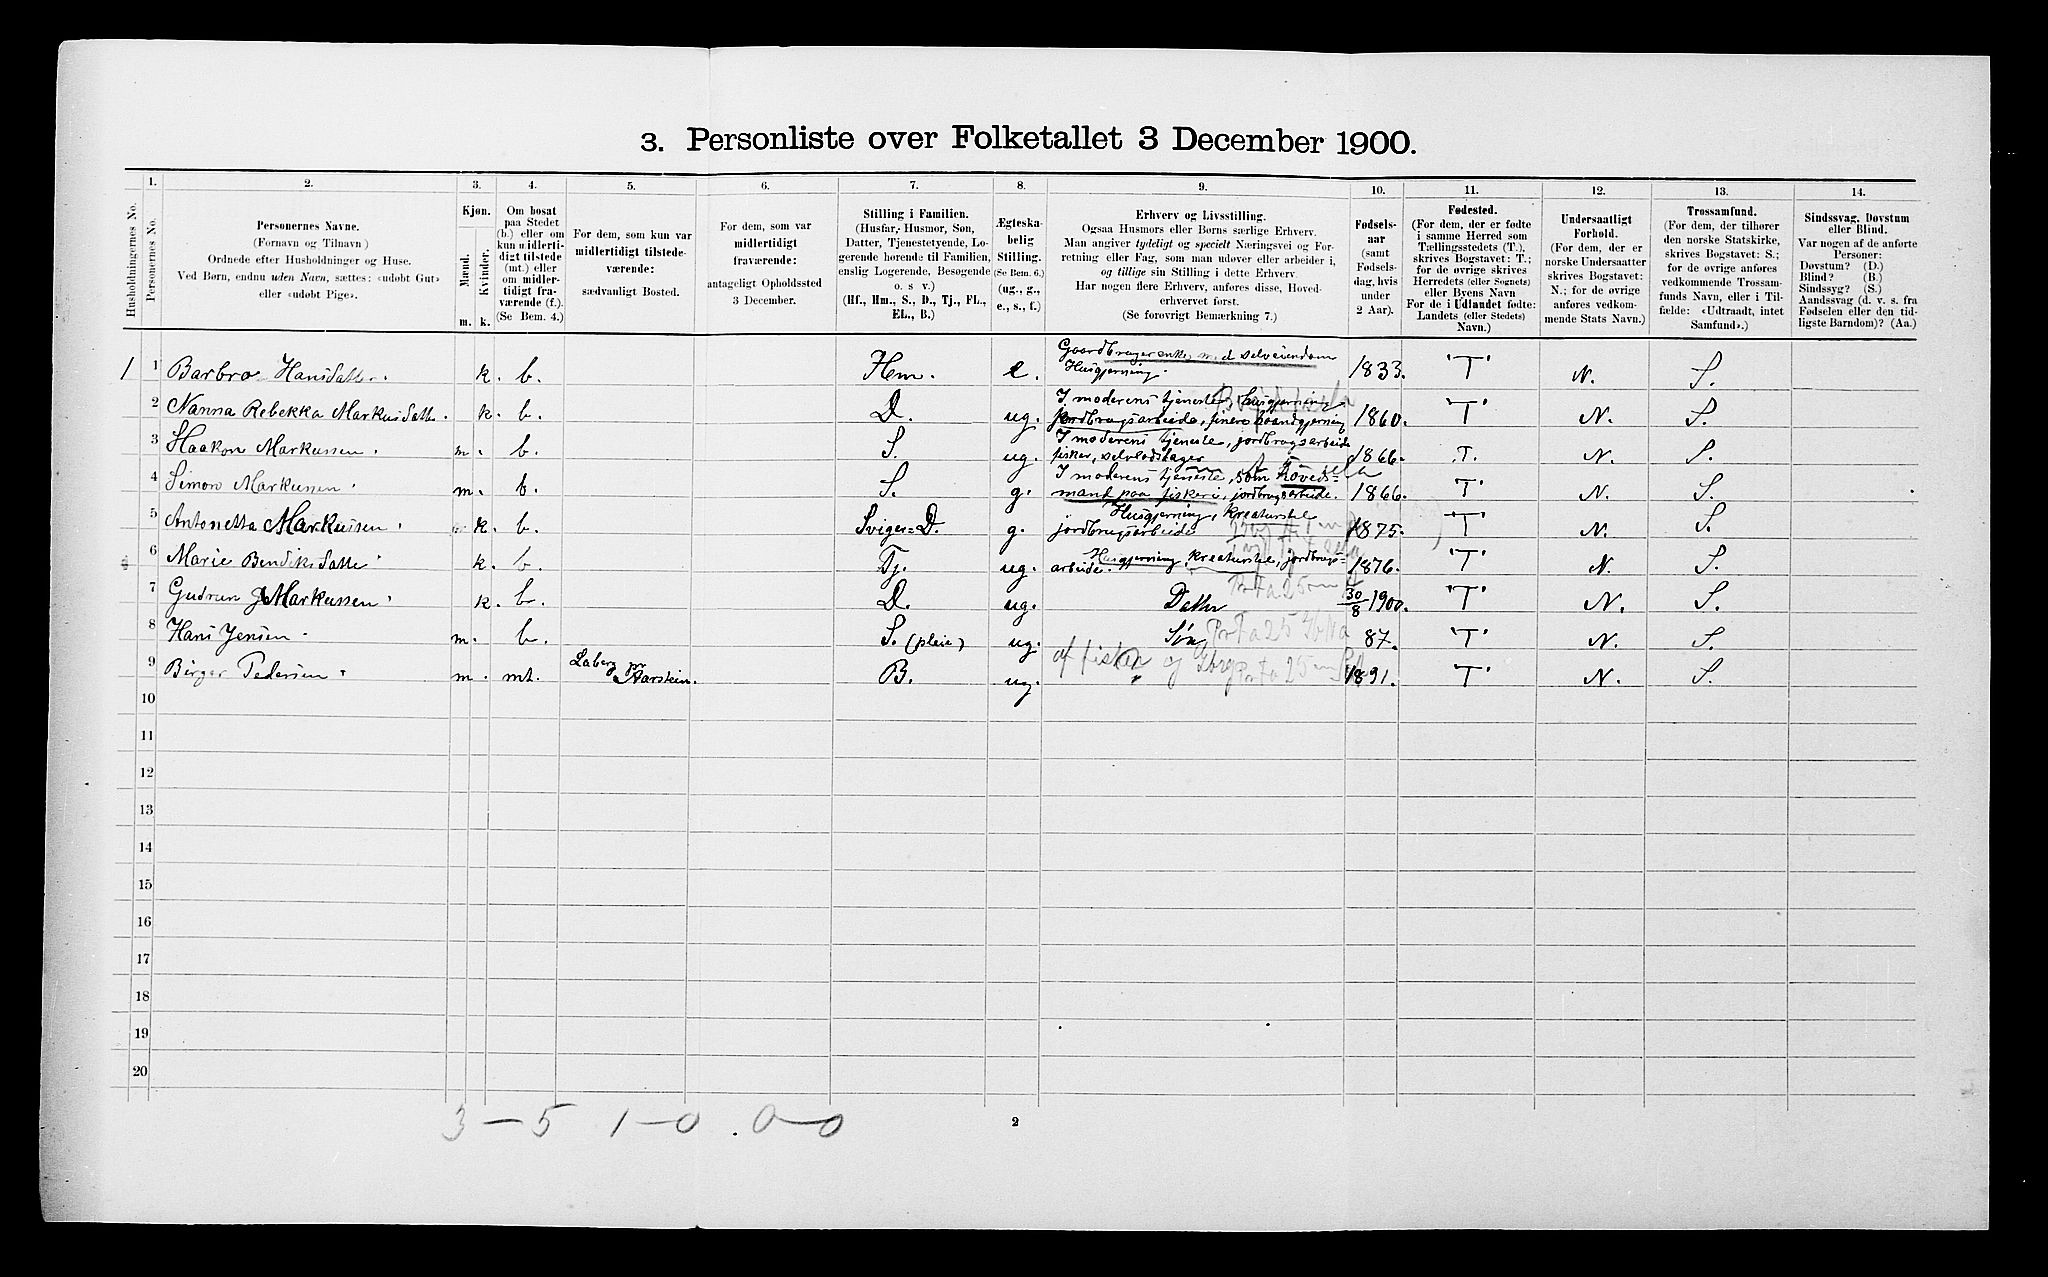 3. Personliste over Folketallet 3 December 1900.
Husholdningernes No.
1.
Personernes No.
2.
Personernes Navne.
(Fornavn og Tilnavn)
Ordnede efter Husholdninger og Huse.
Ved Børn, endnu uden Navn, sættes: «udøbt Gut»
eller «udøbt Pige».
3.
Kjøn.
Mænd.
Kvinder.
m. k.
4.
Om bosat
paa Stedet
(b.) eller om
kun midlerti-
digt tilstede
(mt.) eller
om midler-
tidigt fra-
værende (f.).
(Se Bem. 4.)
5.
For dem, som kun var
midlertidigt tilstede-
værende:
sædvanligt Bosted.
6.
For dem, som var
midlertidigt
fraværende:
antageligt Opholdssted
3 December.
7.
Stilling i Familien.
(Husfar, Husmor, Søn,
Datter, Tjenestetyende, Lo-
gerende hørende til Familien,
enslig Logerende, Besøgende
o. s v.)
(Hf., Hm., S., D., Tj., FL.,
EL., B.)
8.
Ægteska-
belig
Stilling.
(Se Bem. 6.)
(ug., g.,
e., s., f.)
9.
Erhverv og Livsstilling.
Ogsaa Husmors eller Børns særlige Erhverv.
Man angiver tydeligt og specielt Næringsvei og For-
retning eller Fag, som man udøver eller arbeider i,
og tillige sin Stilling i dette Erhverv.
Har nogen flere Erhverv, anføres disse, Hoved-
erhvervet først.
(Se forøvrigt Bemærkning 7.)
10.
Fødsels-
aar
(samt
Fødsels-
dag, hvis
under
2 Aar).
11.
Fødested.
(For dem, der er fødte
i samme Herred som
Tællingsstedets (T.),
skrives Bogstavet: T.;
for de øvrige skrives
Herredets (eller Sognets)
eller Byens Navn
For de i Udlandet fødte:
Landets (eller Stedets)
Navn.)
12.
Undersaatligt
Forhold.
(For dem, der er
norske Undersaatter
skrives Bogstavet:
N.; for de øvrige
anføres vedkom-
mende Stats Navn.)
13.
Trossamfund.
(For dem, der tilhører
den norske Statskirke,
skrives Bogstavet: S.;
for de øvrige anføres
vedkommende Trossam-
funds Navn, eller i Til-
fælde: «Udtraadt, intet
Samfund».)
14.
Sindssvag, Døvstum
eller Blind.
Var nogen af de anførte
Personer:
Døvstum? (D.)
Blind? (B.)
Sindssyg? (S.)
Aandssvag (d. v. s. fra
Fødselen eller den tid-
ligste Barndom)? (Aa.)
1 1 Barbro Hansdatter. k. b. Hem. e. Gaardbrugerenke med selveiendom 1833. 'T' N. S.
Husgjerning.
2 Nanna Rebekka Markusdatter. k. b. D. ug. I moderens tjeneste, husgjerning 1860. 'T' N. S.
jordbrugsarbeide, finere haandgjerning
3 Haakon Markussen. m. b. S. ug. I moderens tjeneste, jordbrugsarbeide 1866. T. N. S.
fisker, selvlodstager
4 Simon Markussen. m. b. S. g. I moderens tjeneste, som høveds- 1866. 'T' N. S.
mand paa fiskeri, jordbrugsarbeide.
5 Antonetta Markussen. k. b. Sviger=D. g. Husgjerning, kreaturstel 1875. 'T' N. S.
jordbrugsarbeide
6 Marie Bendiksdatter k. b. Tj. ug. Husgjerning, kreaturstel, jordbrugs- 1876. 'T' N. S.
arbeide.
7 Gudrun Markussen. k. b. D. ug. Datter 30/8 1900. 'T' N. S.
8 Hans Jensen. m. b. S. (pleie) ug. Søn 87. 'T' N. S.
9 Birger Pedersen. m. mt. Laberg pr Aarstein. B. ug. af fisker og 1891. 'T' N. S.
10
11
12
13
14
15
16
17
18
19
20
3-5 1-0. 0-0
2